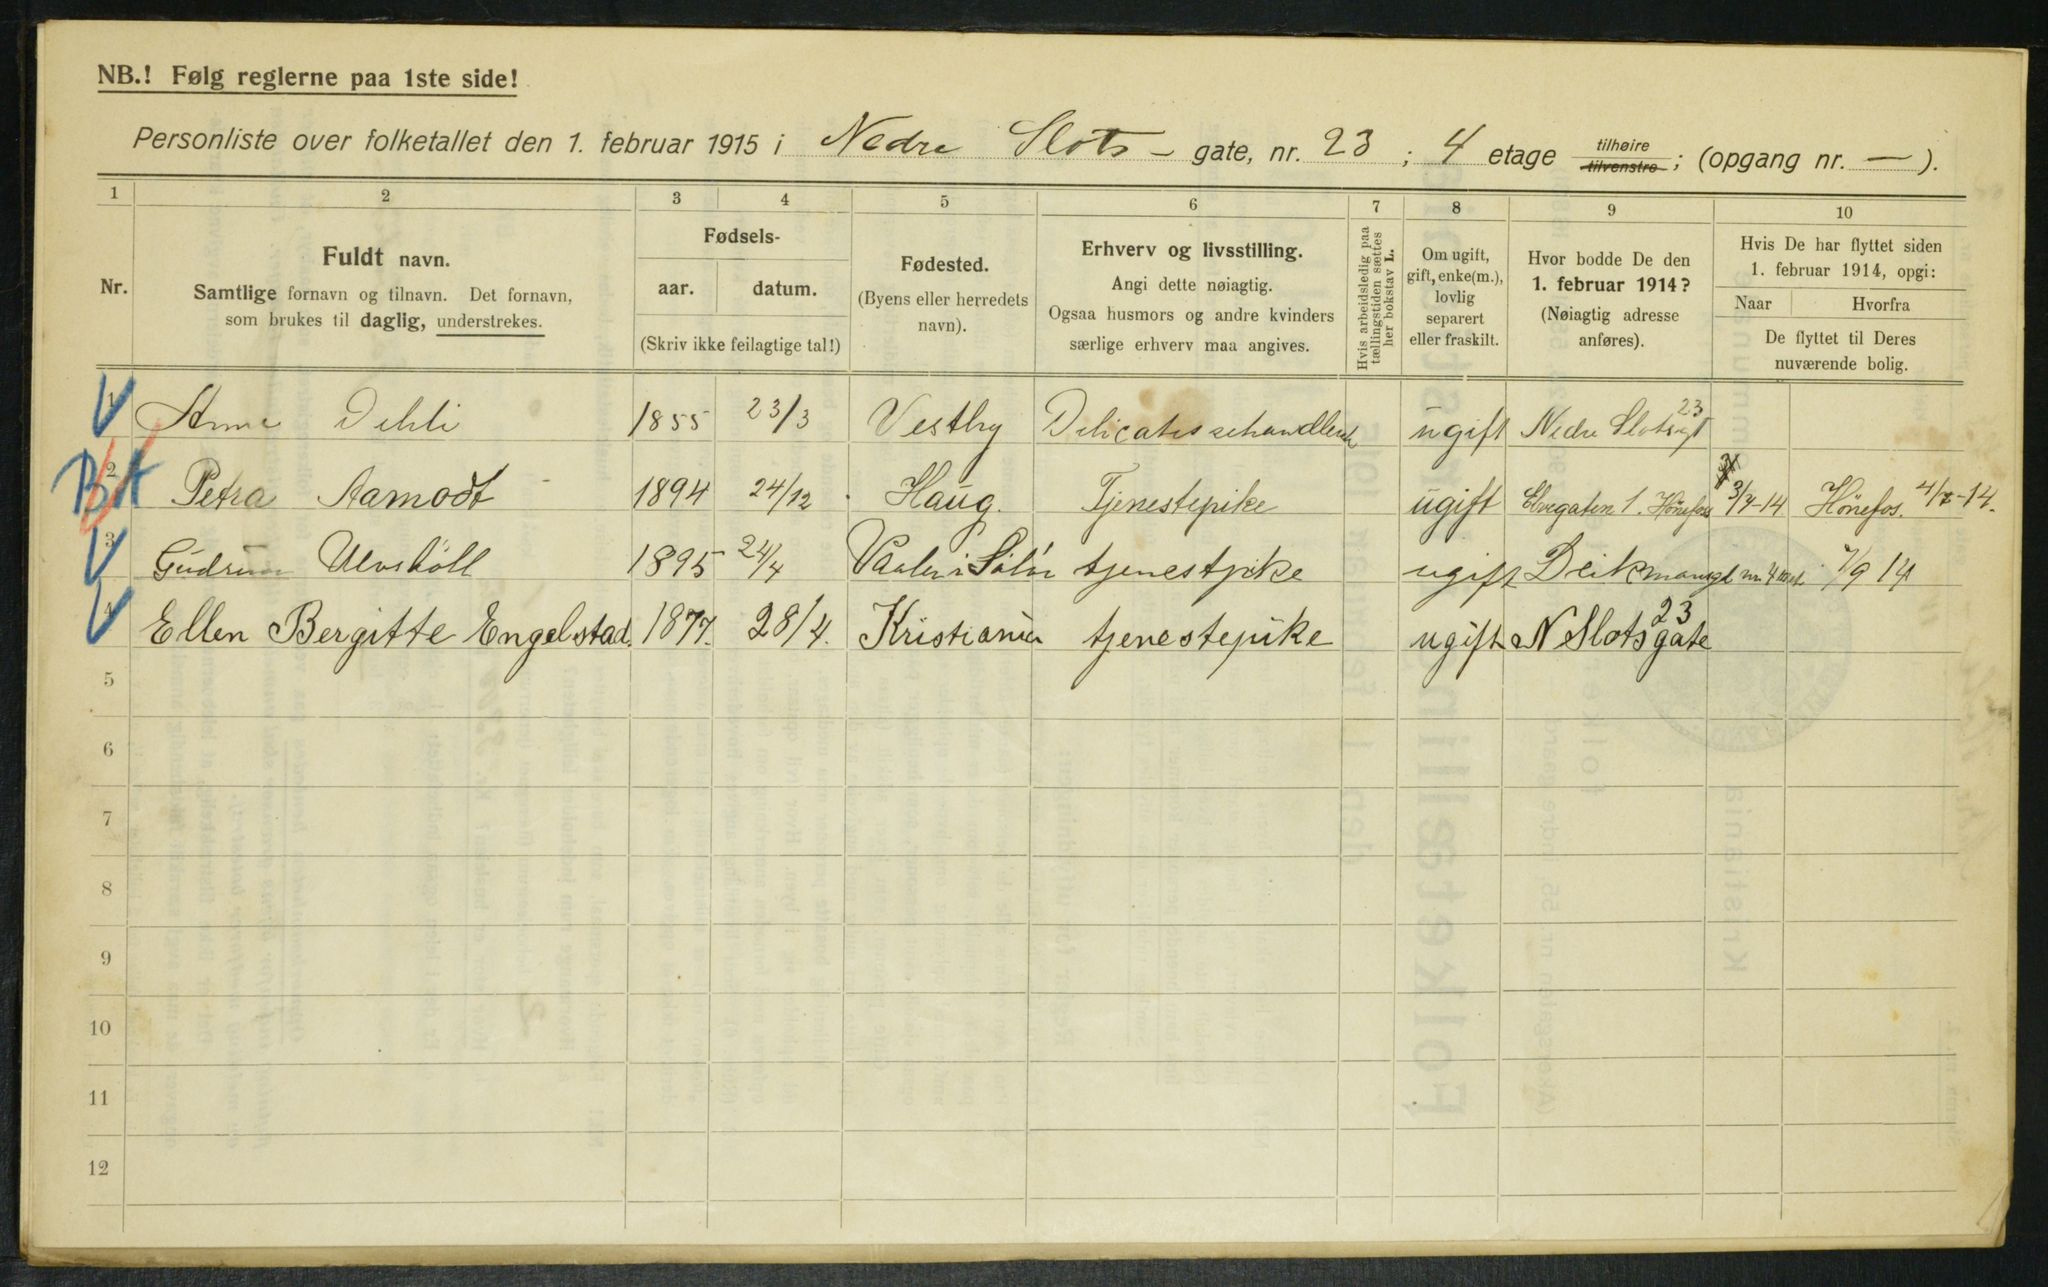 NB.! Følg reglerne paa 1ste side!
Personliste over folketallet den 1. februar 1915 i Nedre Slots - gate, nr. 23 ; 4 etage tilhøire tilvenstre ; (opgang nr. — ).
1 2 3 4 5 6 7 8 9 10
Nr.
Fuldt navn.
Samtlige fornavn og tilnavn. Det fornavn,
som brukes til daglig, understrekes.
Fødsels-
aar. datum.
(Skriv ikke feilagtige tal!)
Fødested.
(Byens eller herredets
navn).
Erhverv og livsstilling.
Angi dette nøiagtig.
Ogsaa husmors og andre kvinders
særlige erhverv maa angives.
Hvis arbeidsledig paa
tællingstiden sættes
her bokstav L.
Om ugift,
gift, enke(m.),
lovlig
separert
eller fraskilt.
Hvor bodde De den
1. februar 1914?
(Nøiagtig adresse
anføres).
Hvis De har flyttet siden
1. februar 1914, opgi:
Naar Hvorfra
De flyttet til Deres
nuværende bolig.
1 Anna Dehli 1855 23/3 Vestby ugift Nedre Slotsgt 23
2 Petra Aamodt 1894 24/12 Haug. Tjenestepike ugift Elvegaten 1. Hønefoss 3/7-14 Hönefos. 4/7-14.
3 Gudrun 1895 24/4 tjenestpike ugift 1/9 14
4 Ellen Bergitte Engelstad. 1877. 28/4. Kristiania tjenestepike ugift N Slotsgate 23
5
6
7
8
9
10
11
12